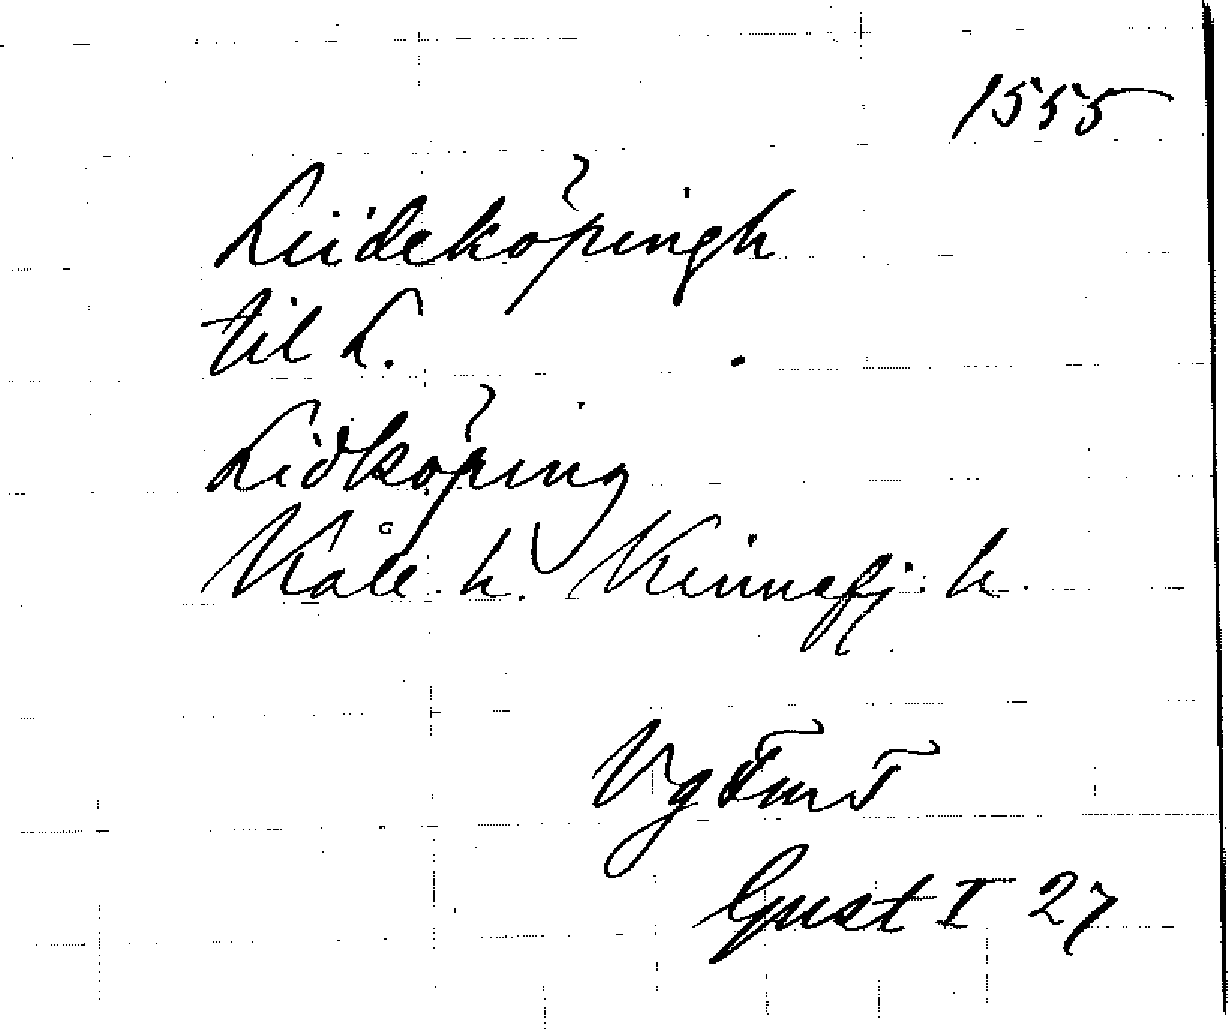 1555
Liideköpingh
til L.
Lidköping
Kåll. h. Kinnefj. h.
Vg FmT
Gust I 27